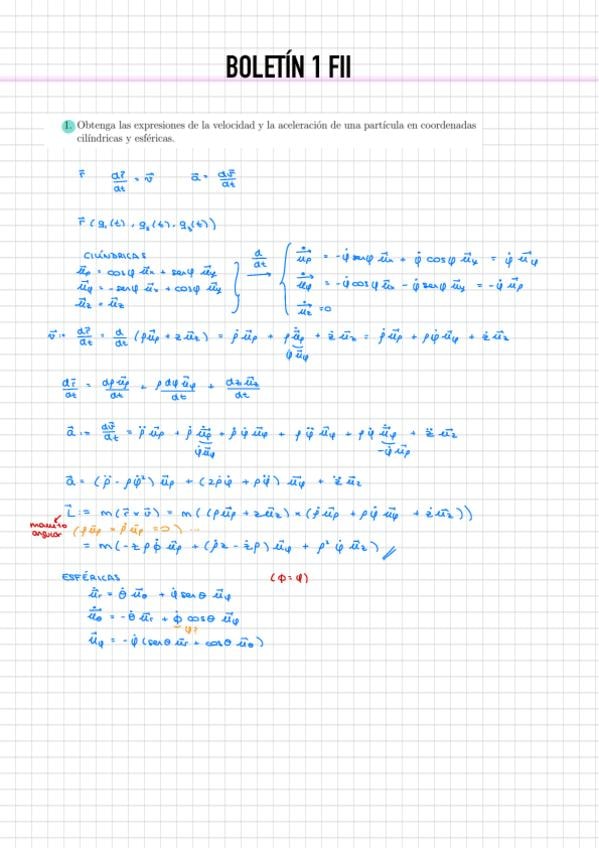 BOLETÍN 1 FII
1. Obtenga las expresiones de la velocidad y la aceleración de una partícula en coordenadas
cilíndricas y esféricas.
r⃗   dr⃗/dt = v⃗   a⃗ = dv⃗/dt
r⃗ (q₁(t), q₂(t), q₃(t))
CILÍNDRICAS
u⃗ρ = cosφ u⃗x + senφ u⃗y
u⃗φ = -senφ u⃗x + cosφ u⃗y
u⃗z = u⃗z
d/dt →
u⃗̇ρ = -φ̇ senφ u⃗x + φ̇ cosφ u⃗y = φ̇ u⃗φ
u⃗̇φ = -φ̇ cosφ u⃗x - φ̇ senφ u⃗y = -φ̇ u⃗ρ
u⃗̇z = 0
v⃗ := dr⃗/dt = d/dt (ρu⃗ρ + zu⃗z) = ρ̇ u⃗ρ + ρu⃗̇ρ + ż u⃗z = ρ̇ u⃗ρ + ρφ̇ u⃗φ + ż u⃗z
φ̇u⃗φ
dr⃗/dt = dρu⃗ρ/dt + ρdφu⃗φ/dt + dzu⃗z/dt
a⃗ := dv⃗/dt = ρ̈ u⃗ρ + ρ̇ u⃗̇ρ + ρ̇ φ̇ u⃗φ + ρ φ̈ u⃗φ + ρφ̇ u⃗̇φ + z̈ u⃗z
φ̇u⃗φ   -φ̇u⃗ρ
a⃗ = (ρ̈ - ρφ̇²) u⃗ρ + (2ρ̇φ̇ + ρφ̈) u⃗φ + z̈ u⃗z
L⃗ := m(r⃗ × v⃗) = m((ρu⃗ρ + zu⃗z) × (ρ̇u⃗ρ + ρφ̇ u⃗φ + żu⃗z))
momento
angular
(ρu⃗ρ × ρ̇u⃗ρ = 0) ...
= m(-zρφ̇ u⃗ρ + (ρ̇z - żρ) u⃗φ + ρ² φ̇ u⃗z)
ESFÉRICAS   (ϕ = φ)
u⃗̇r = θ̇ u⃗θ + φ̇ senθ u⃗φ
u⃗̇θ = -θ̇ u⃗r + ϕ̇ cosθ u⃗φ
φ?
u⃗̇φ = -φ̇ (senθ u⃗r + cosθ u⃗θ)